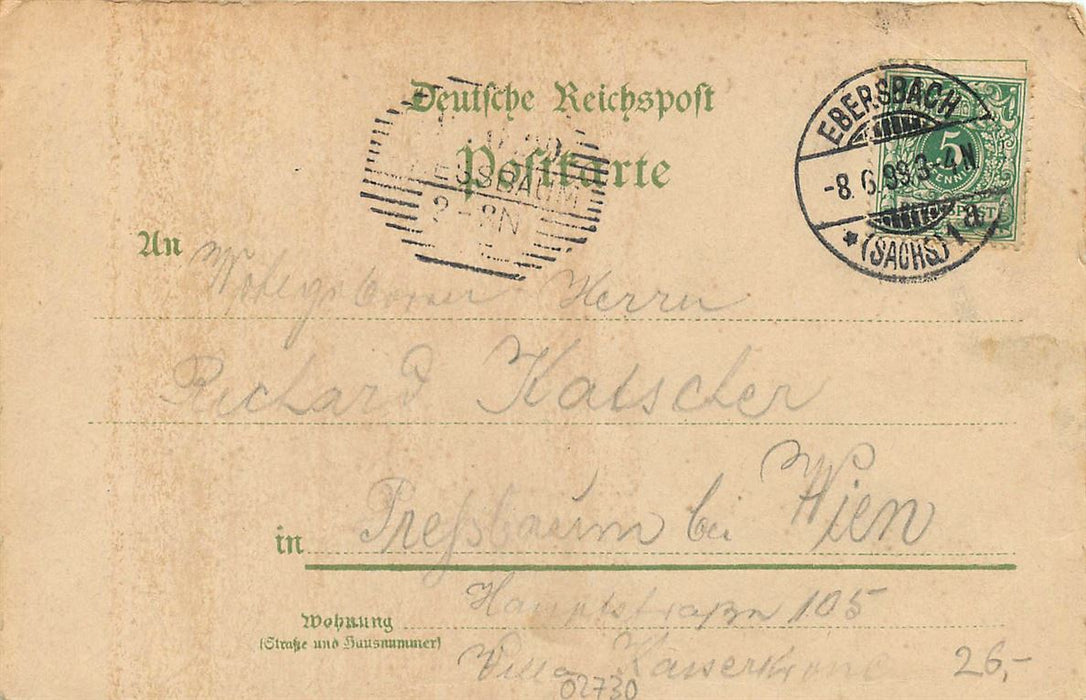 Deutsche Reichspost
Postkarte
EBERSBACH
-8.6.99.3-4N
*(SACHS)1a
5
EUSSBAUM
2-8N
An Wohlgeboren Herrn
Richard Katscher
in Preßbaum bei Wien
Hauptstraße 105
Wohnung
(Straße und Hausnummer)
Villa Kaiserkrone
26,-
02730